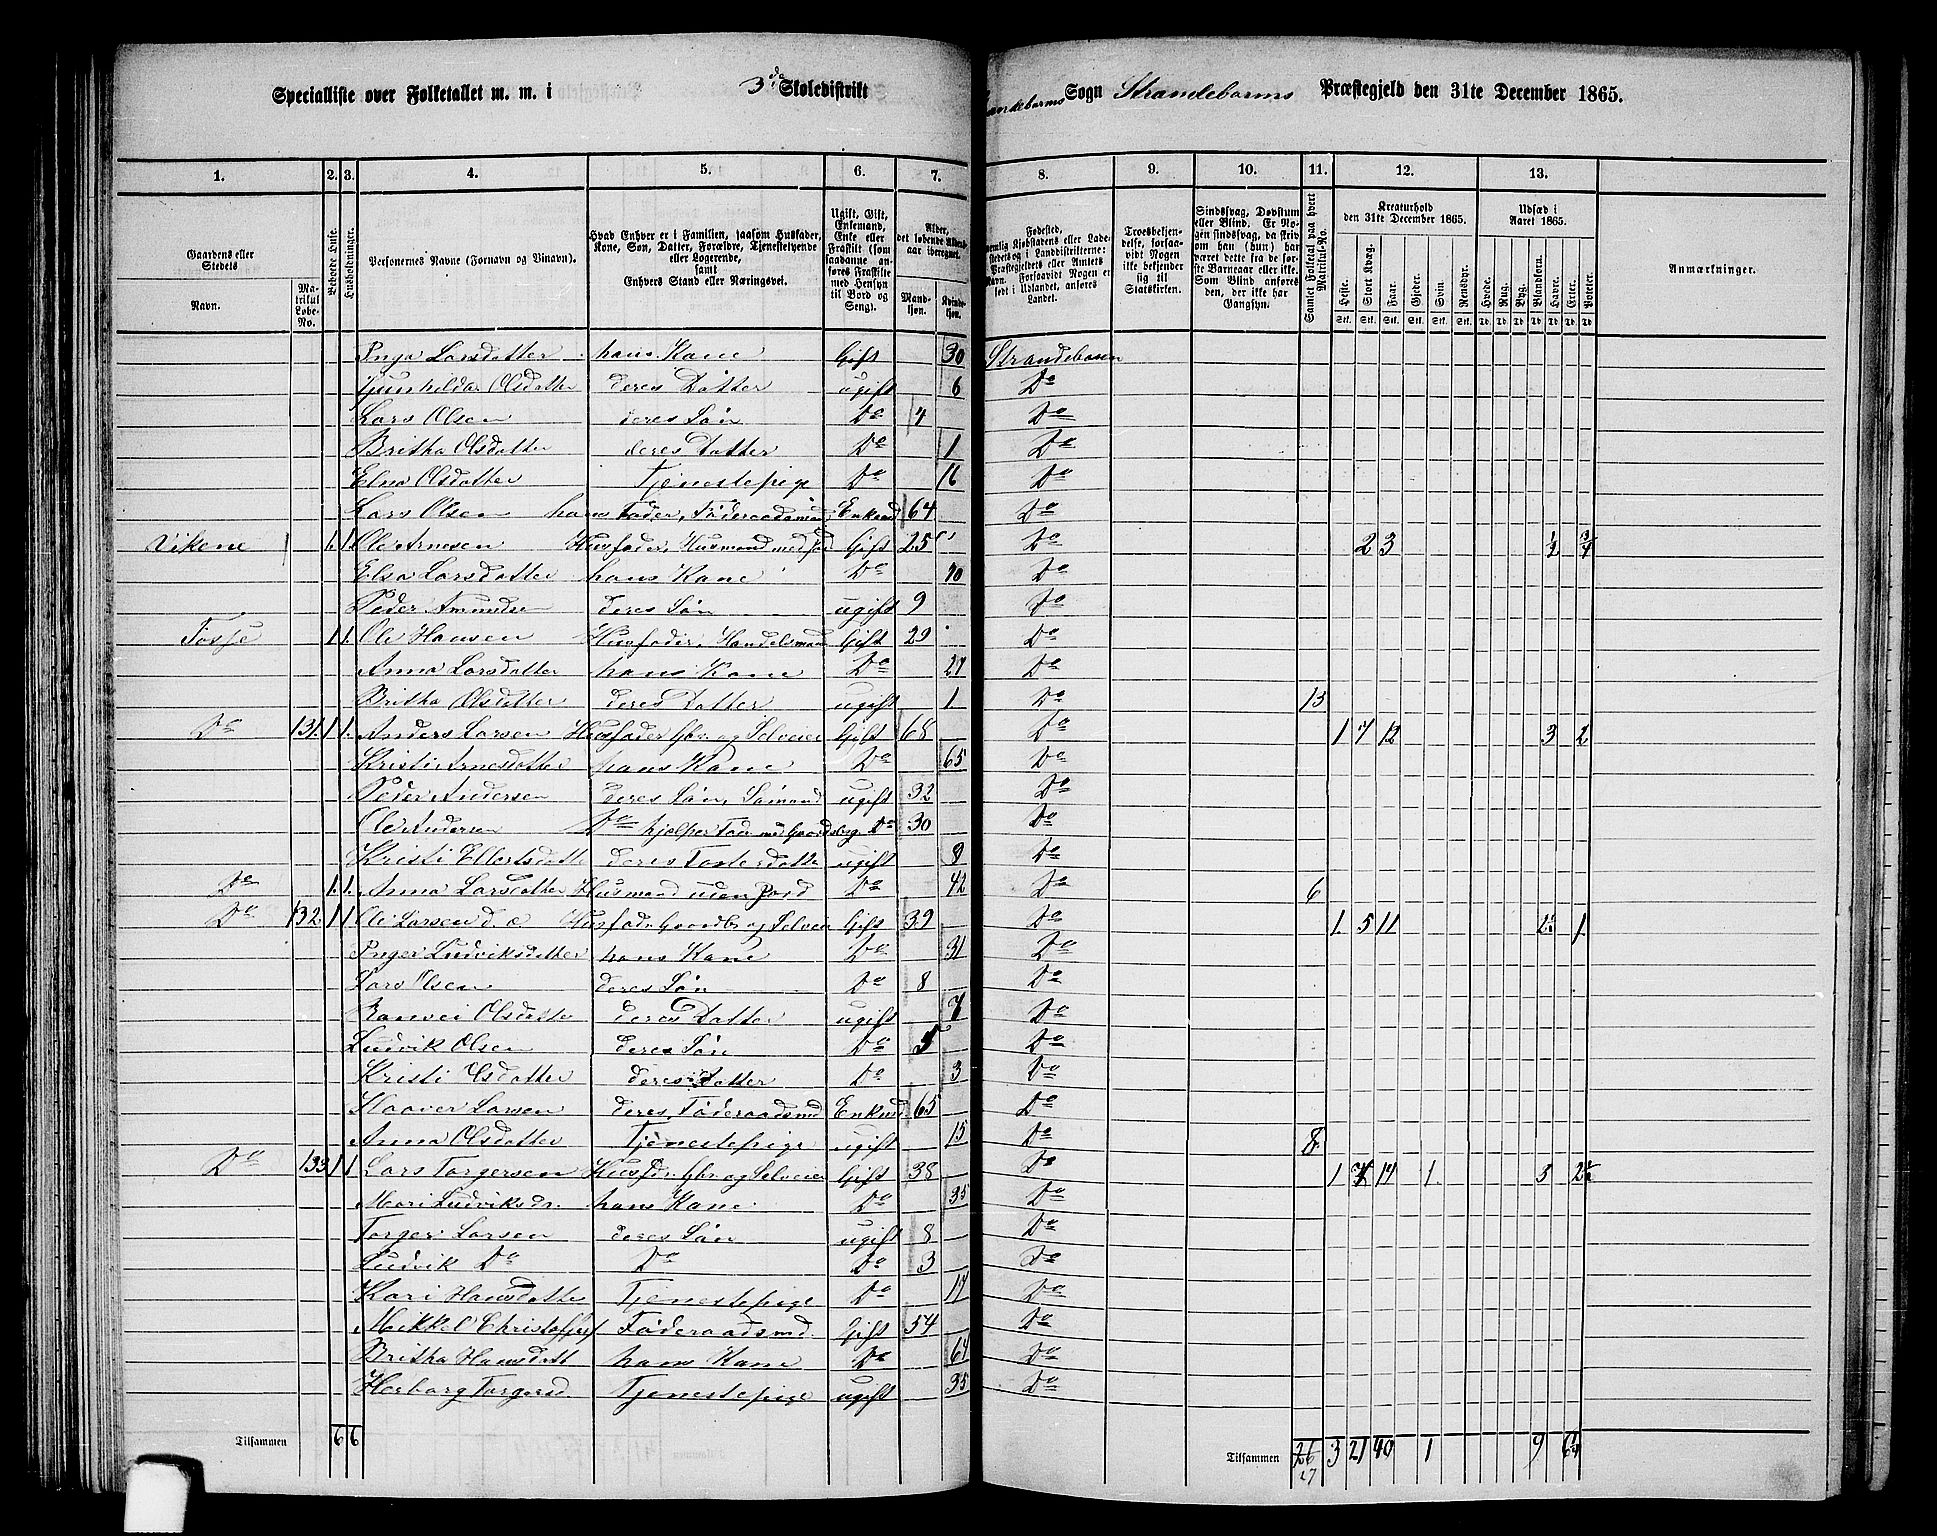 Specialliste over Folketallet m. m. i 3de Skoledistrikt Sogn Strandebarms Præstegjeld den 31te December 1865.
1. 2. 3. 4. 5. 6. 7. 8. 9. 10. 11. 12. 13.
Gaardens eller Stedets Navn. Matrikul Løbe-No. Beboede Huse. Husholdninger. Personernes Navne (Fornavn og Tilnavn). Hvad Enhver er i Familien, saasom Husfader, Kone, Søn, Datter, Forældre, Tjenestetyende eller Logerende, samt Enhvers Stand eller Næringsvei. Ugift, Gift, Enkemand, Enke eller Fraskilt (som saadanne anføres Fraskilte med Hensyn til Bord og Seng). Alder, det løbende Alders-aar iberegnet. Mandkjøn. Kvindekjøn. Fødested, Troesbekjendelse, forsaavidt Nogen ikke bekjender sig til Statskirken. Sindssvag, Døvstum eller Blind. Er Nogen sindssvag, da skrives om han (hun) har været dette fra de første Barneaar eller ei. Som Blind anføres den, der ikke har Gangsyn. Samlet Folketal paa hvert Matrikul-No. Kreaturhold den 31te December 1865. Heste. Stort Kvæg. Faar. Gjeder. Svin. Rensdyr. Udsæd i Aaret 1865. Hvede. Rug. Byg. Blandkorn. Havre. Erter. Poteter. Anmærkninger.
Inga Larsdatter hans Kone Gift 30 Strandebarm
Gunhilda Olsdatter deres Datter ugift 6 Do
Lars Olsen deres Søn Do 4 Do
Britha Olsdatter deres Datter Do 1 Do
Elna Olsdatter Tjenestepige Do 16 Do
Lars Olsen hans Fader, Føderaadsmand Enkmd 64 Do
Vikene 1. 1 Ole Arnesen Husfader, Husmand med Jord Gift 25 Do 2 3 1/2 3/4
Elsa Larsdatter hans Kone Do 40 Do
Peder Amundsen deres Søn ugift 9 Do
Tosse 1 1. Ole Hansen Husfader, Handelsmand Gift 29 Do
Anna Larsdatter hans Kone Do 27 Do
Britha Olsdatter deres Datter ugift 1 Do 13
Do 131. 1 1. Anders Larsen Husfader Gbr. og Selveier Gift 68 Do 1 7 12 3 2
Kristi Arnesdatter hans Kone Do 65 Do
Peder Andersen deres Søn, Sømand ugift 32 Do
Ole Andersen Do hjelper Fader med Gaardsbrug Do 30 Do
Kristi Ellertsdatter deres Fosterdatter ugift 8 Do
Do 1. 1. Anna Larsdatter Husmand uden Jord Do 42 Do 6
Do 132 1 1 Ole Larsen d. æ. Husfader Gaardbr og Selveier Gift 39 Do 1. 5 11 1.
Inger Ludviksdatter hans Kone Do 31 Do
Lars Olsen deres Søn Do 8 Do
Ranvei Olsdatter deres Datter ugift 7 Do
Ludvik Olsen deres Søn Do 5 Do
Kristi Olsdatter deres Datter Do 3 Do
Haaver Larsen deres Føderaadsmd Enkmd. 65 Do
Anna Olsdatter Tjenestepige ugift 15 Do 8
Do 133 1 1 Lars Torgersen Husfdr. Gbr og Selveier Gift 38 Do 1 7 17 1 3 2 1/2
Mari Ludviksdr. hans Kone Do 35 Do
Torger Larsen deres Søn ugift 8 Do
Ludvik Do Do Do 3 Do
Kari Hansdatter Tjenestepige Do 17 Do
Mikkel Christoffers Føderaadsmd. Gift 54 Do
Britha Hansdatt hans Kone Do 64 Do
Herborg Torgersd. Tjenestepige ugift 35 Do
Tilsammen 6 6 Tilsammen 3 21 40 1 9